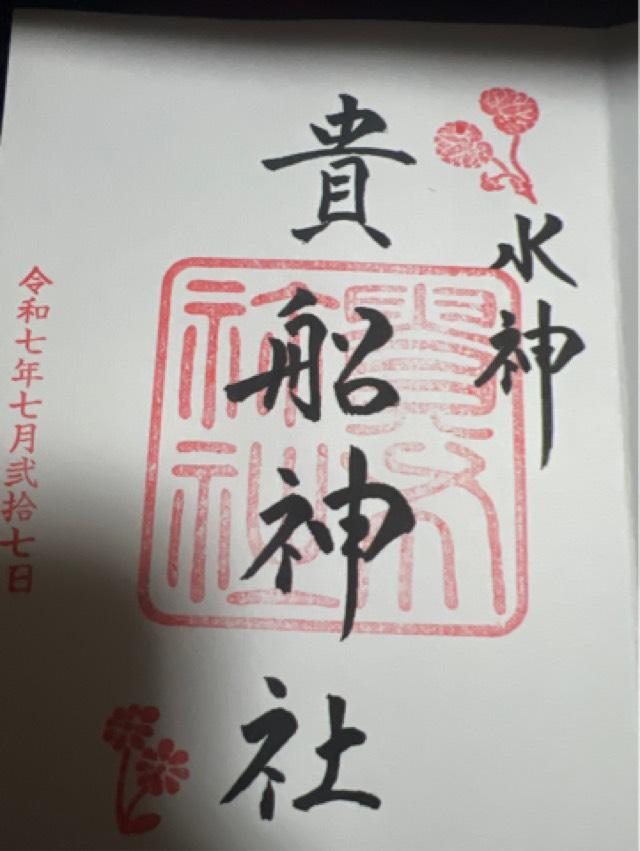 水神
貴船神社
令和七年七月弐拾七日